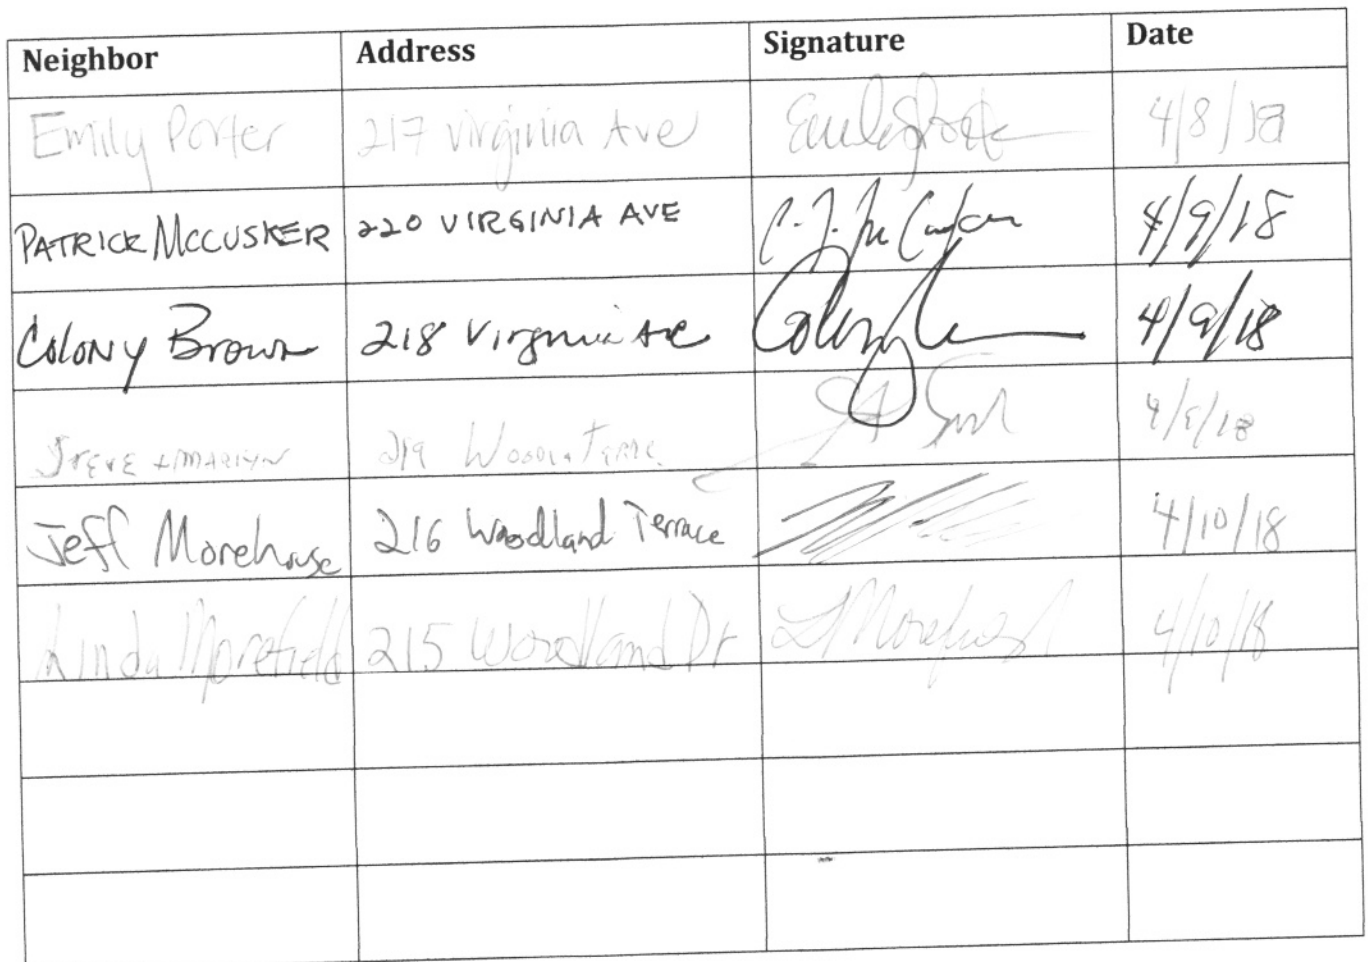 Neighbor Address Signature Date
Emily Porter 217 Virginia Ave 4/8/18
PATRICK MCCUSKER 220 VIRGINIA AVE 4/9/18
Colony Brown 218 Virginia Ave 4/9/18
STEVE + MARILYN 219 4/9/18
Jeff Morehouse 216 Woodland Terrace 4/10/18
Linda Morefield 215 Woodland Dr L Morefield 4/10/18